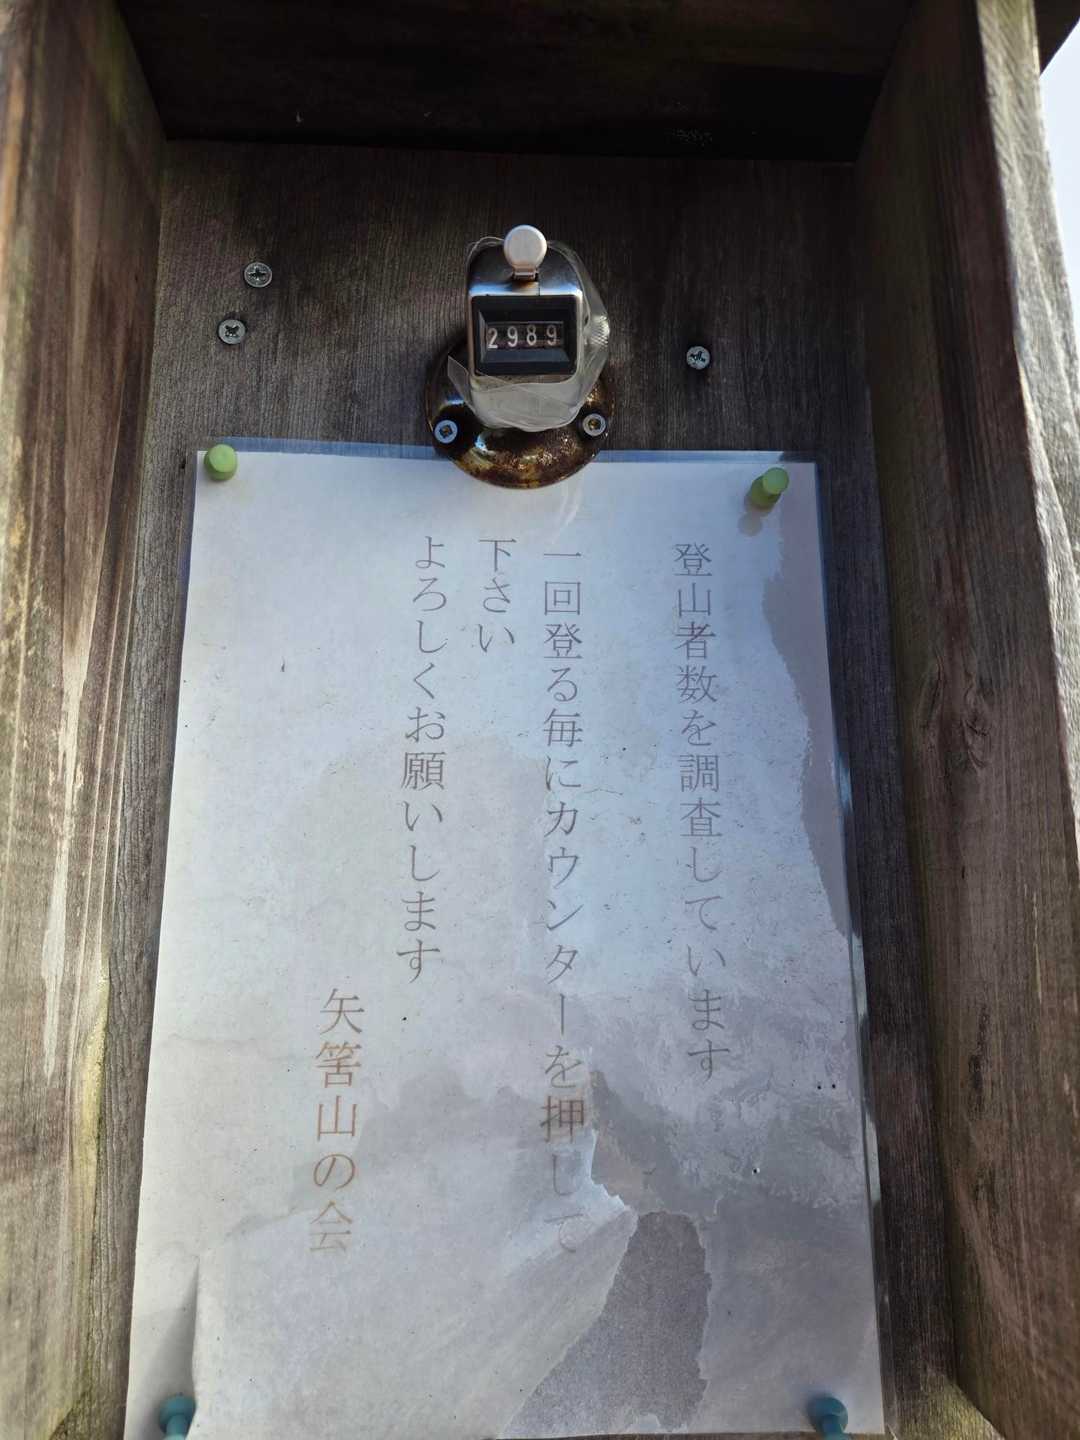 2989
登山者数を調査しています
一回登る毎にカウンターを押して
下さい
よろしくお願いします
矢筈山の会